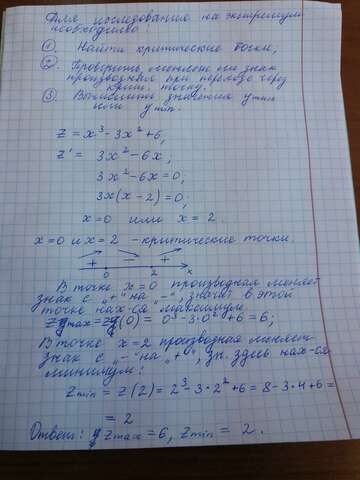 Для исследования на экстремум
необходимо:
1. Найти критические точки,
2. Проверить, меняет ли знак
производная при переходе через
крит. точку.
3. Вычислить значения yтах
или ymin.
z = x³ - 3x² + 6,
z' = 3x² - 6x;
3x² - 6x = 0;
3x(x - 2) = 0;
x = 0 или x = 2.
x = 0 и x = 2 - критические точки.
+ - +
0 2 x
В точке x = 0 производная меняет
знак с „+" на „-", значит в этой
точке нах-ся максимум
zmax = z(0) = 0³ - 3·0² + 6 = 6;
В точке x = 2 производная меняет
знак с „-" на „+", зн. здесь нах-ся
минимум:
zmin = z(2) = 2³ - 3·2² + 6 = 8 - 3·4 + 6 =
= 2
Ответ: zmax = 6, zmin = 2.